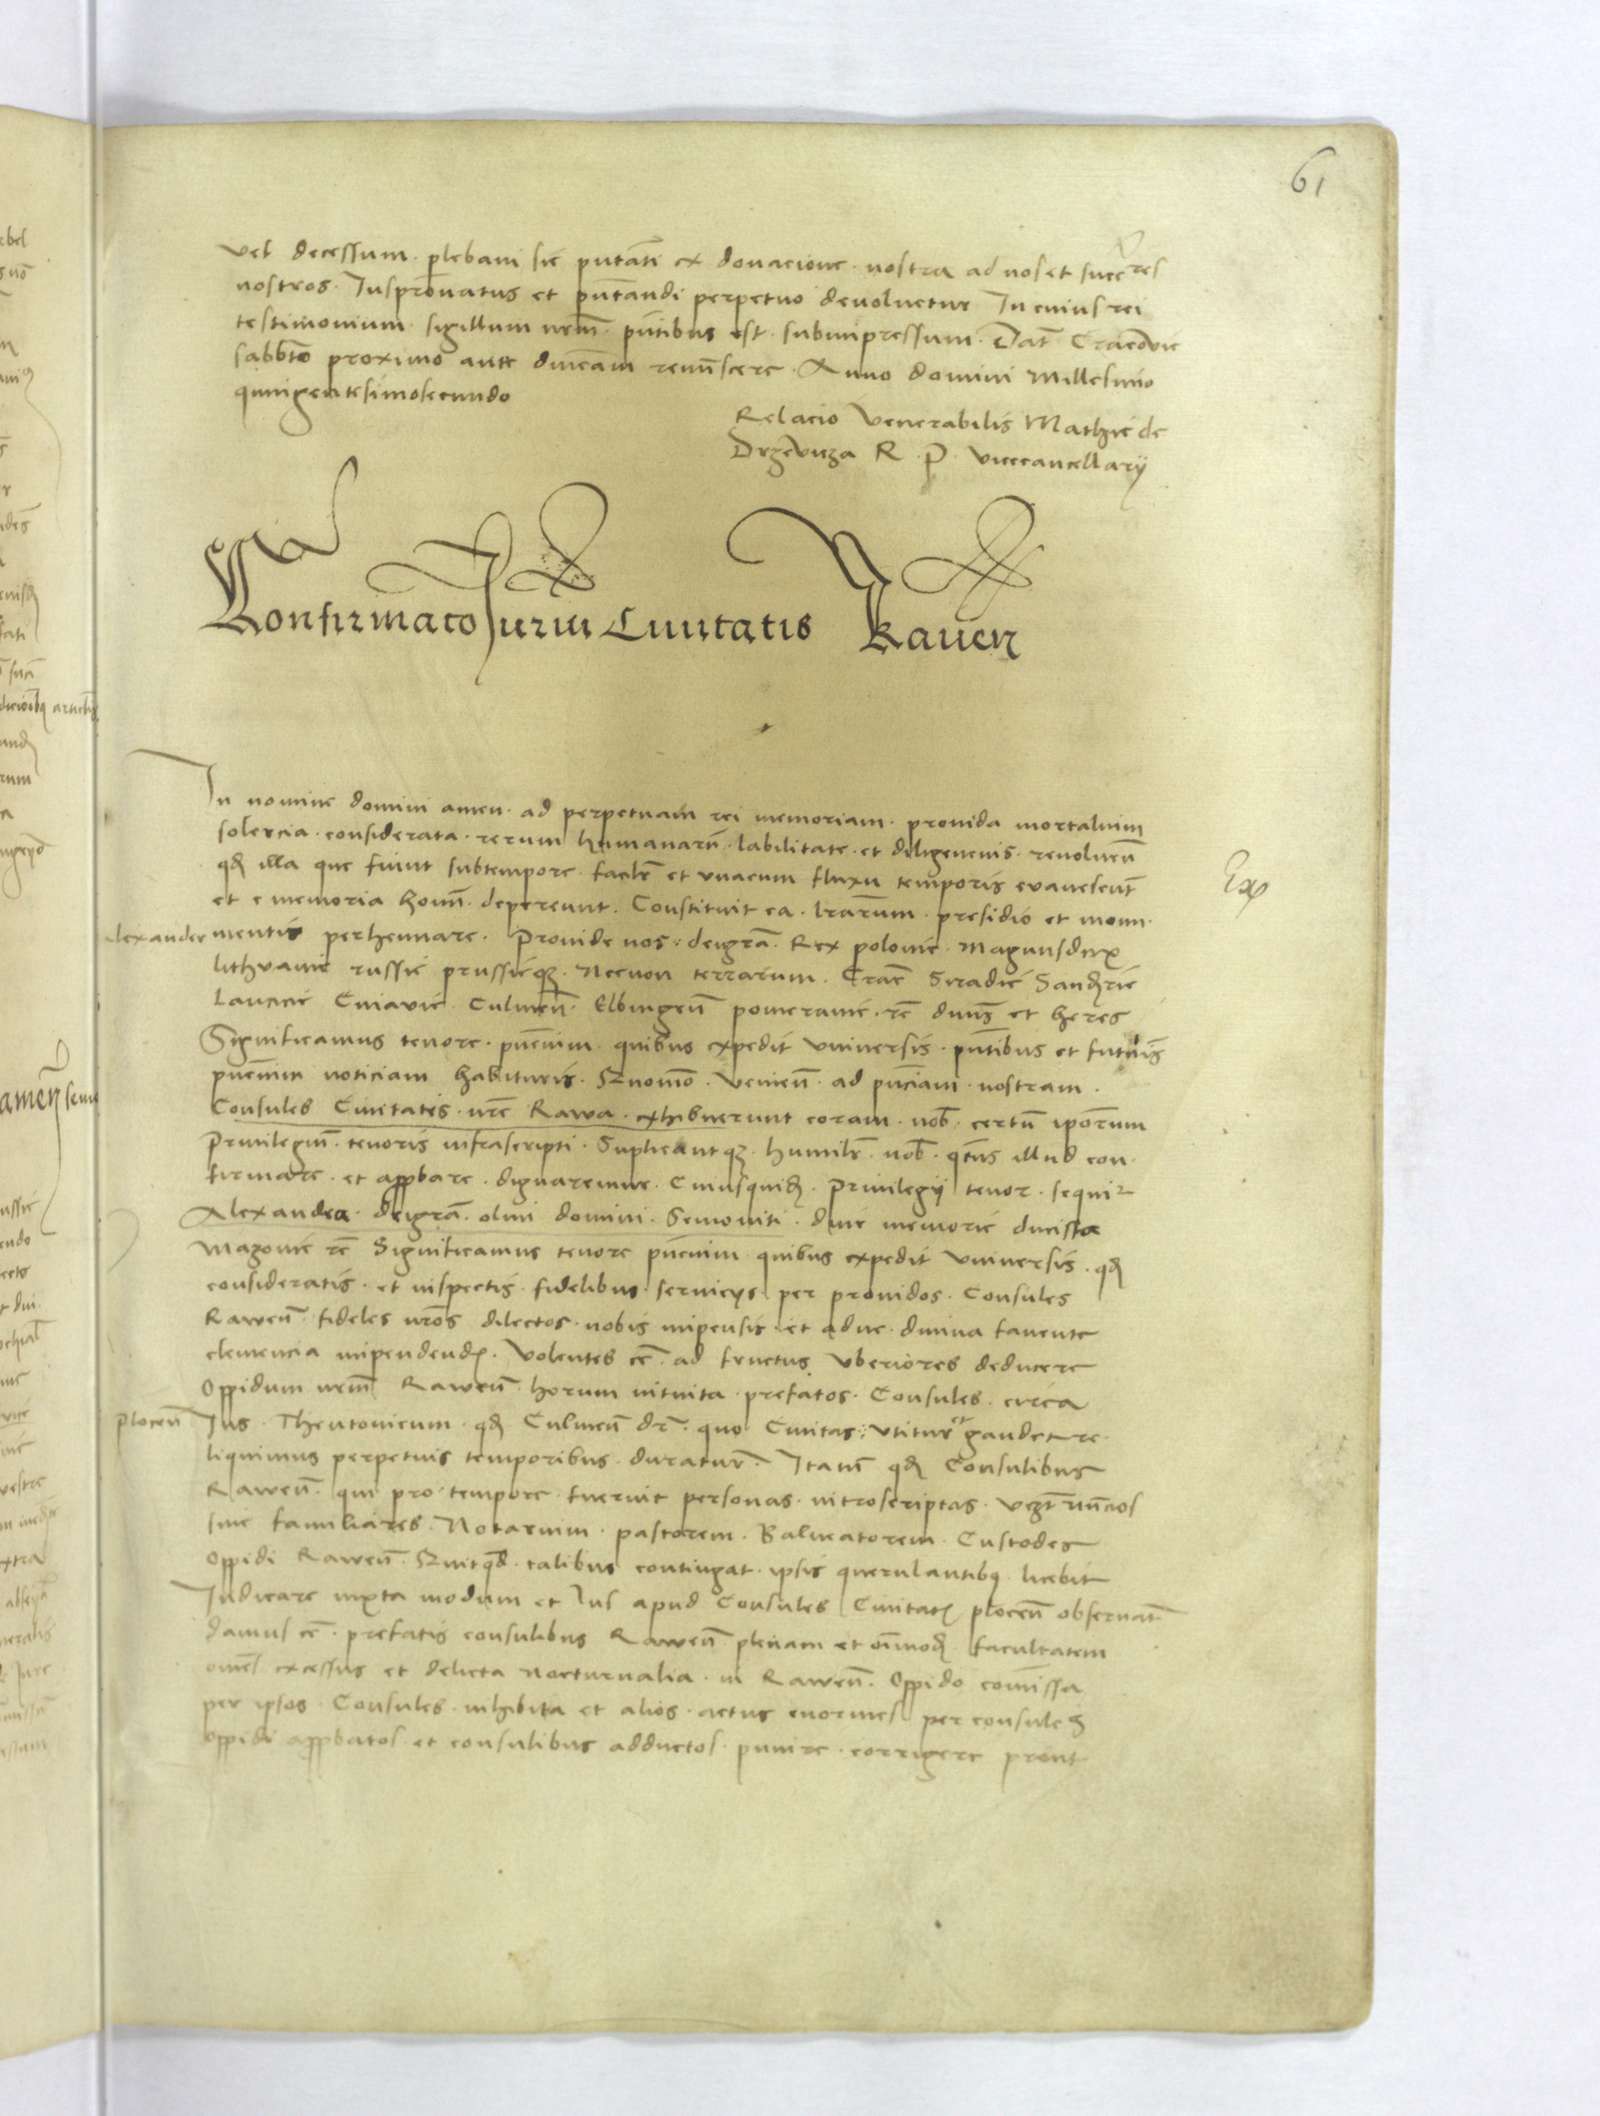 61
vel decessum plebani sic pntati ex donacione nostra ad nos et succres
nostros Juspronatus et pntandi perpetuo devoluetur In cuius rei
testimonium sigillum nrm pntibus est subimpressum Dat Cracovie
sabbto proximo ante dnicam remscere Anno domini Millesimo
quingentesimosecundo
Relacio Venerabilis Mathie de
Drzevicza R P vicecancellarij
Confirmaco Juriu Civitatis Raven
In nomine domini amen ad perpetuam rei memoriam provida mortalium
solercia considerata rerum humanaru labilitate et diligencius revoluen
qd illa que fiunt subtempore facilr et unacum fluxu temporis evanescunt
et e memoria homn depereunt Constituit ea lrarum presidio et monu
Alexander mentis perhennare Provide nos deigra Rex polonie Magnusdux
lithvanie russie prussieqz Necnon terrarum Crac Siradie Sandrie
Lancicie Cuiavie Culmen Elbingen pomeranie rc dnns et heres
Significamus tenore pncium quibus expedit universis pntibus et futuris
pncium noticiam habituris Quomo venien ad pnciam nostram
Consules Civitatis nre Rawa exhibuerunt coram nob certu iporum
Privilegiu tenoris infrascripti Suplicantqz humilr nob qtns illud con
firmare et appbare dignaremur Cuiusquid Privilegij tenor sequir
Alexander deigra olim domini Semoviti dive memorie ducis
Mazovie rc Significamus tenore pncium quibus expedit universis qd
consideratis et inspectis fidelibus servicijs per providos Consules
Rawen fideles nros dilectos nobis impensis et aduc divina favente
clemencia impendend Volentes ec ad fructus uberiores deducere
Oppidum nrm Rawen horum intuita prefatos Consules circa
Plocen Jus Theutonicum qd Culmen dr quo Civitas utitur et gaudet re
liquimus perpetuis temporibus duratur Itatn qd Consulibus
Rawen qui pro tempore fuerint personas introscriptas vczt nucios
sive familiares Notarium pastorem Balneatorem Custodes
Oppidi Rawen Quitqd talibus contingat ipsis querulantibus licebit
Judicare iuxta modum et Jus apud Consules Civitatis plocen observat
damus ec prefatis consulibus Rawen plenam et omnimod facultatem
omnes excessus et delicta nocturnalia in Rawen Oppido comissa
per ipsos Consules inhibita et alios actus enormes per consules
oppidi appbatos et consulibus adductos punire corrigere prout